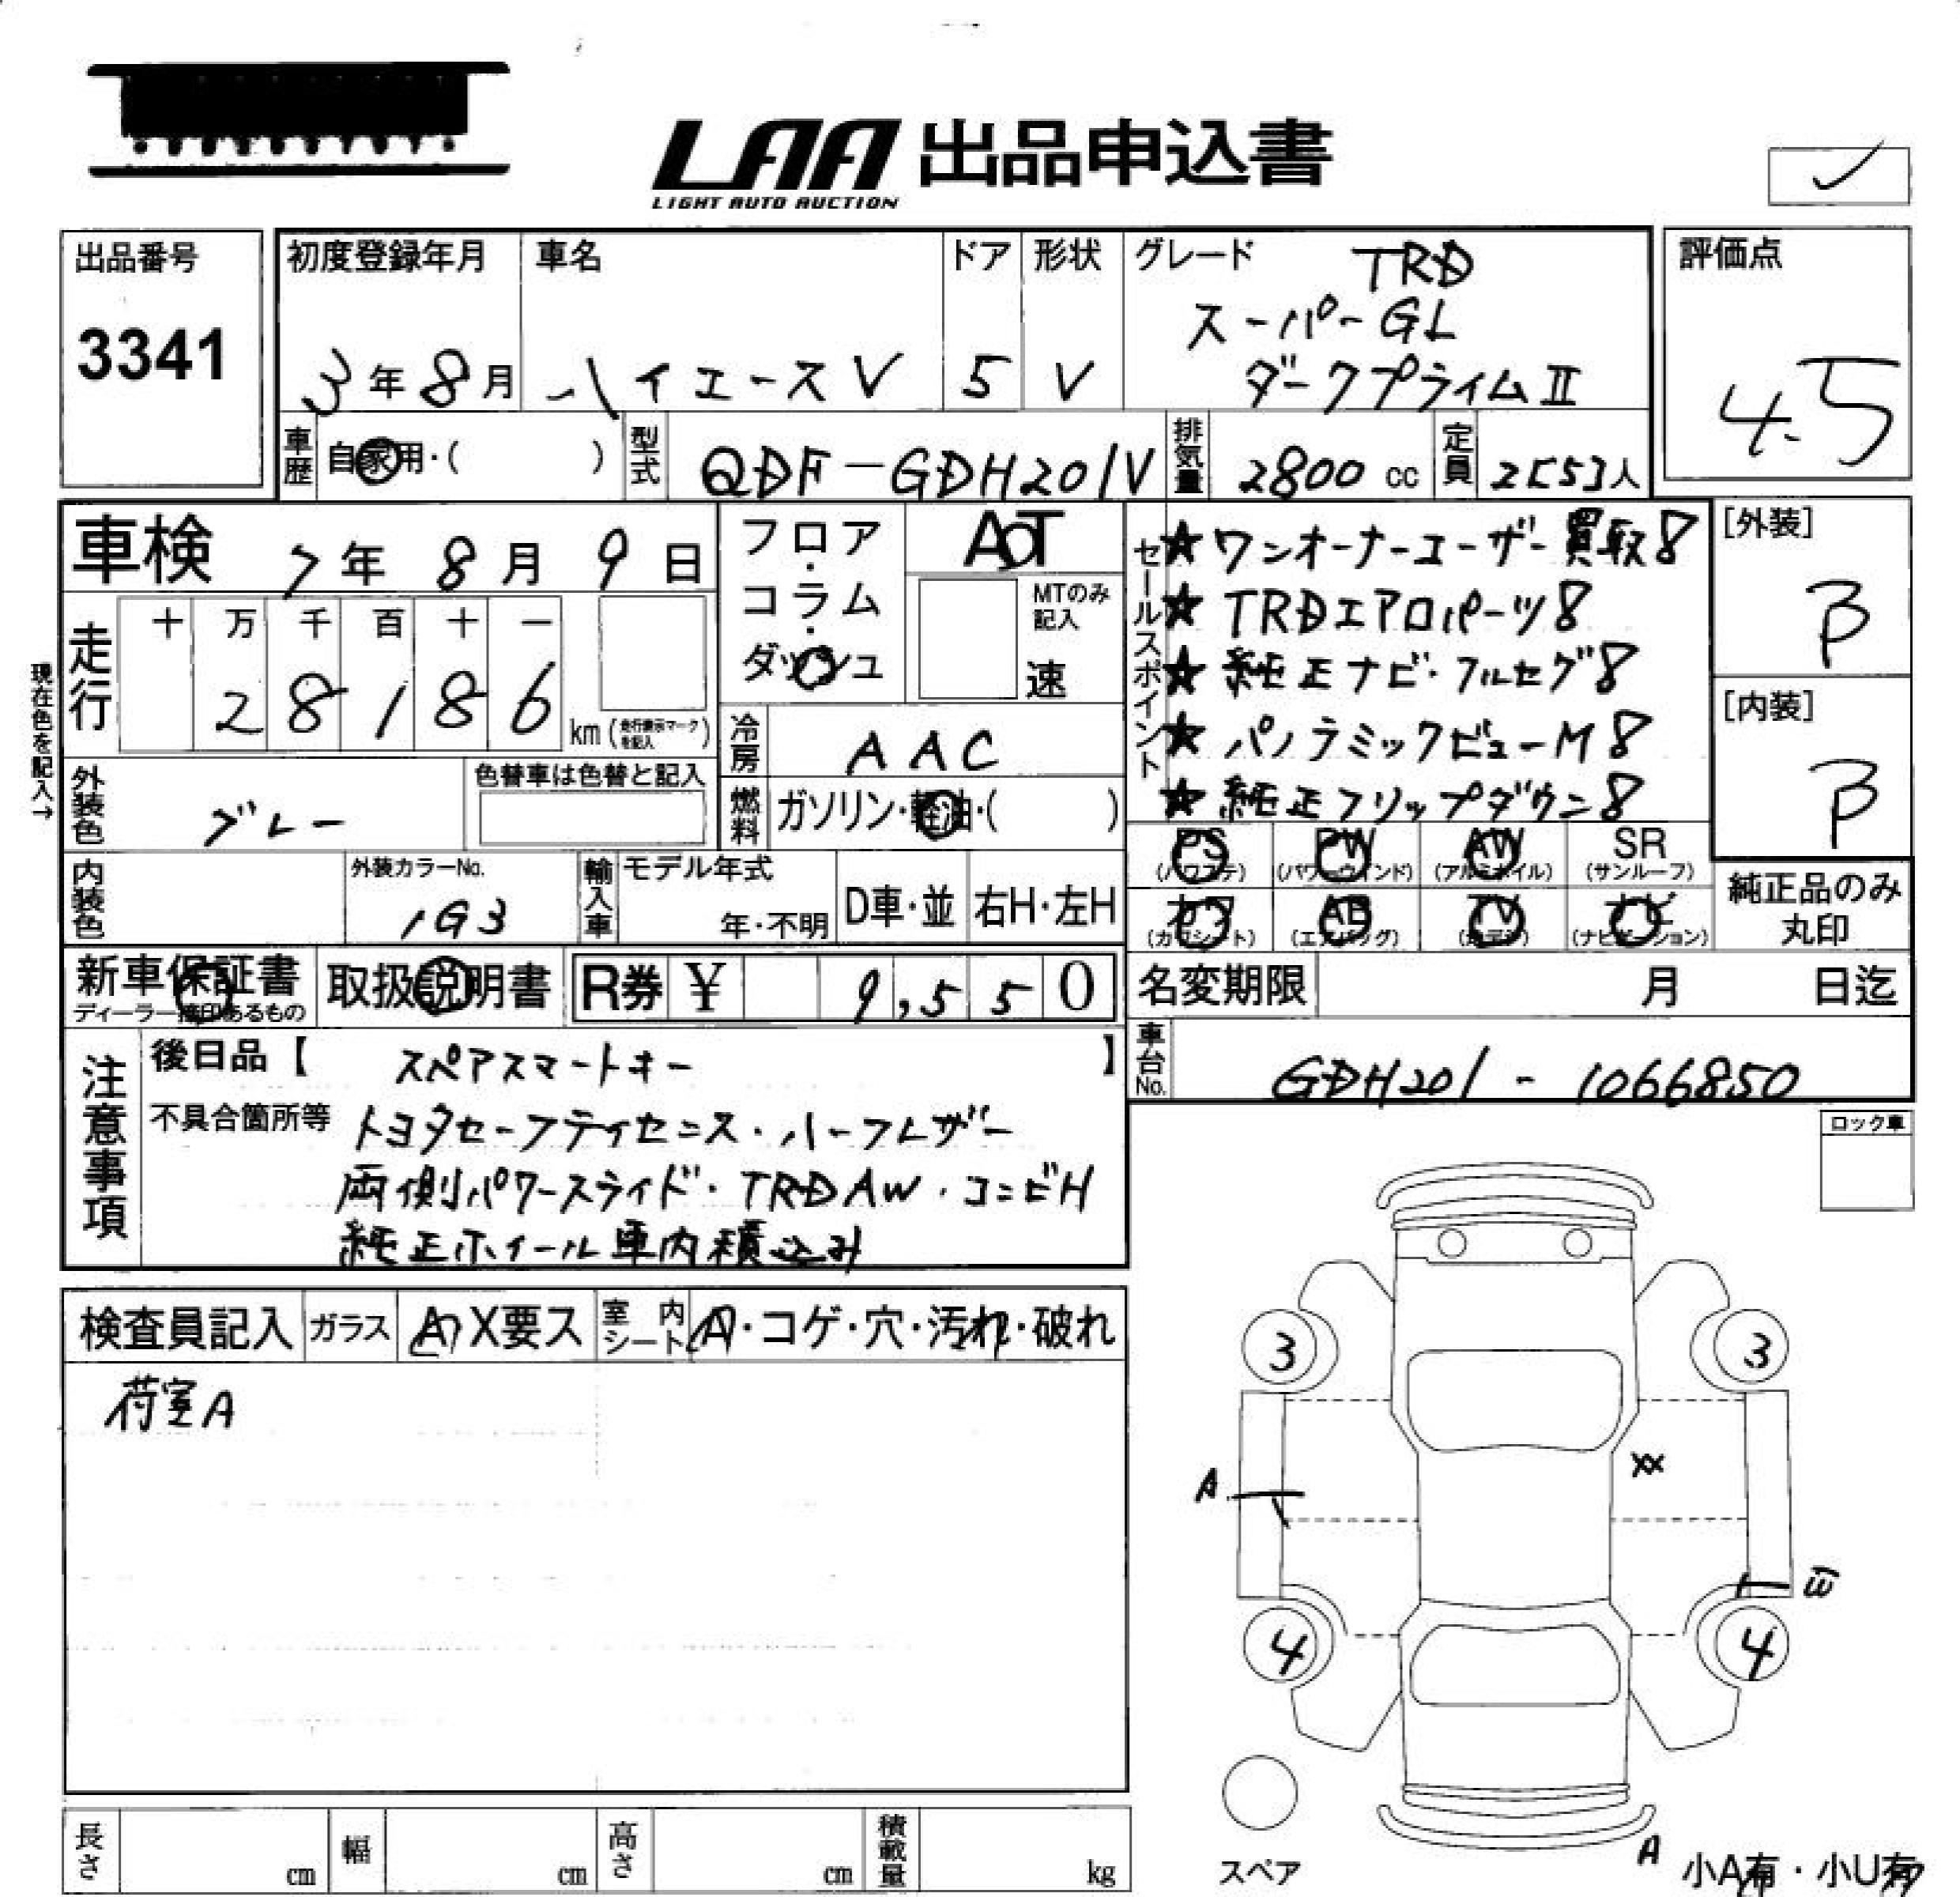 LAA 出品申込書
LIGHT AUTO AUCTION
出品番号
3341
初度登録年月
3年8月
車名
ハイエースV
ドア
5
形状
V
グレード
TRD
スーパーGL
ダークプライムⅡ
評価点
4.5
車歴 自家用・( )
型式 QDF-GDH201V
排気量 2800cc
定員 2[5]人
車検 7年8月9日
フロア・コラム・ダッシュ
AT
MTのみ記入
速
セールスポイント
★ワンオーナーユーザー買取8
★TRDエアロパーツ8
★純正ナビ・フルセグ8
★パノラミックビューM8
★純正フリップダウン8
[外装]
B
[内装]
B
現在色を記入→
走行
十 万 千 百 十 一
2 8 1 8 6
km(走行表示マークを記入)
冷房 AAC
外装色 グレー
色替車は色替と記入
燃料 ガソリン・軽油・( )
内装色
外装カラーNo.
1G3
輸入車
モデル年式
年・不明
D車・並
右H・左H
PS (パワステ)
PW (パワーウインド)
AW (アルミホイル)
SR (サンルーフ)
カワ (カワシート)
AB (エアバッグ)
TV (地デジ)
ナビ (ナビゲーション)
純正品のみ丸印
新車保証書
ディーラー捺印あるもの
取扱説明書
R券 ¥ 9,550
名変期限 月 日迄
車台No. GDH201-1066850
注意事項
後日品【 スペアスマートキー 】
不具合箇所等 トヨタセーフティセンス・ハーフレザー
両側パワースライド・TRDAW・コンビH
純正ホイール車内積込み
ロック車
検査員記入
ガラス A X要ス
室内シート A・コゲ・穴・汚れ・破れ
荷室A
3
3
XX
A
4
4
スペア
A
小A有・小U有
長さ cm
幅 cm
高さ cm
積載量 kg